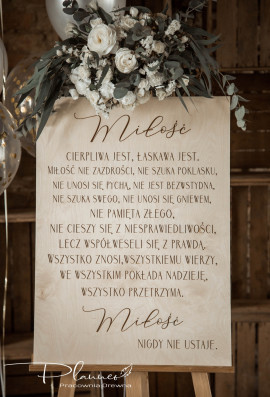 Miłość
CIERPLIWA JEST, ŁASKAWA JEST.
MIŁOŚĆ NIE ZAZDROŚCI, NIE SZUKA POKLASKU,
NIE UNOSI SIĘ PYCHĄ, NIE JEST BEZWSTYDNA,
NIE SZUKA SWEGO, NIE UNOSI SIĘ GNIEWEM,
NIE PAMIĘTA ZŁEGO,
NIE CIESZY SIĘ Z NIESPRAWIEDLIWOŚCI,
LECZ WSPÓŁWESELI SIĘ Z PRAWDĄ.
WSZYSTKO ZNOSI,WSZYSTKIEMU WIERZY,
WE WSZYSTKIM POKŁADA NADZIEJĘ,
WSZYSTKO PRZETRZYMA.
Miłość
NIGDY NIE USTAJE.
Pracownia Drewna